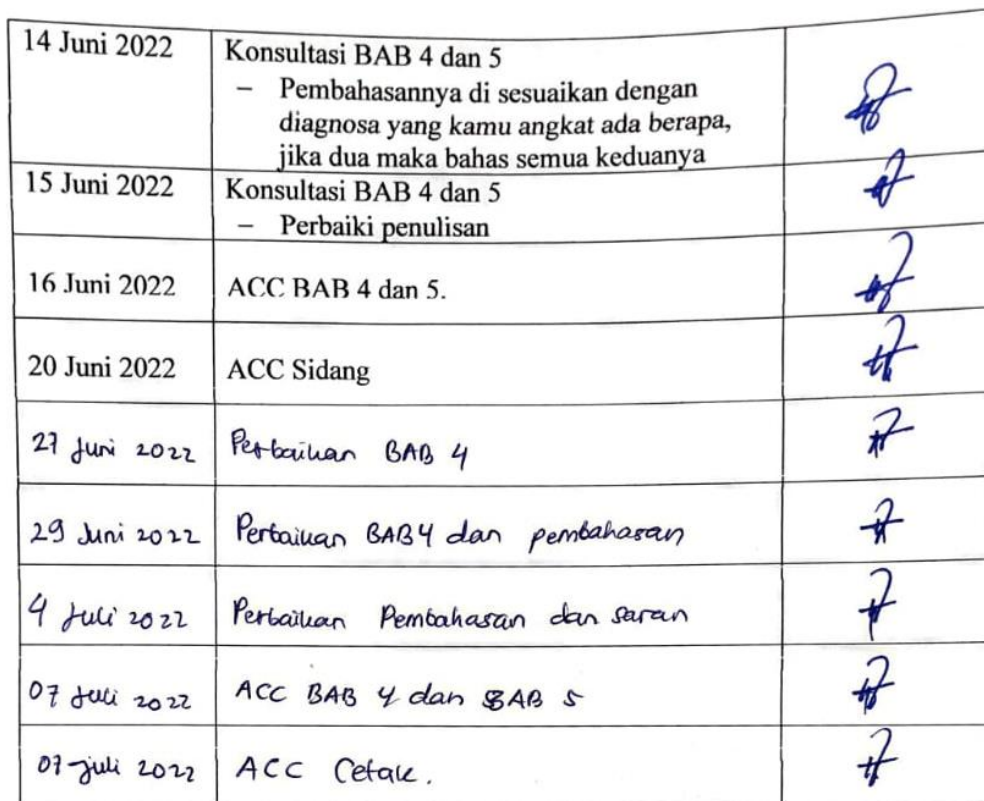 14 Juni 2022
Konsultasi BAB 4 dan 5
– Pembahasannya di sesuaikan dengan
diagnosa yang kamu angkat ada berapa,
jika dua maka bahas semua keduanya
15 Juni 2022
Konsultasi BAB 4 dan 5
– Perbaiki penulisan
16 Juni 2022
ACC BAB 4 dan 5.
20 Juni 2022
ACC Sidang
27 Juni 2022
Perbaikan BAB 4
29 Juni 2022
Perbaikan BAB 4 dan pembahasan
4 Juli 2022
Perbaikan Pembahasan dan saran
07 Juli 2022
ACC BAB 4 dan BAB 5
07 Juli 2022
ACC Cetak.